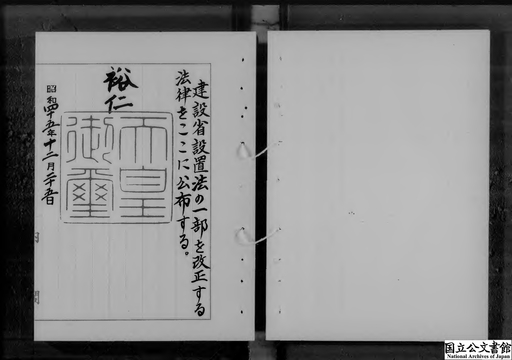 建設省設置法の一部を改正する
法律をここに公布する。
裕仁
天皇
御璽
昭和四十五年十二月二十五日
内閣
国立公文書館
National Archives of Japan